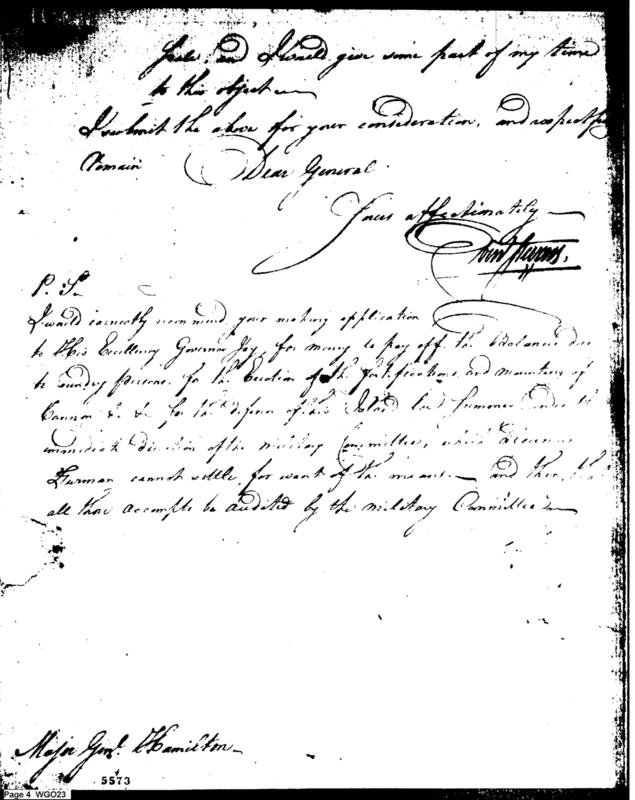 and I would give some part of my time
to this object —
I submit the above for your consideration, and respectfully
Remain Dear General
Yours affectionately —
P. S.
I would earnestly recommend your making application
to His Excellency Governor Jay, for money to pay off the Balances due
to sundry persons for the Erection of the fortifications and mounting of
Cannon &c &c for the defence of this Island last Summer under the
immediate direction of the Military Committee, which
Furman cannot settle for want of the means — and that
all those accompts be audited by the Military Committee —
Major Genl. Hamilton —
5573
Page 4 WGO23